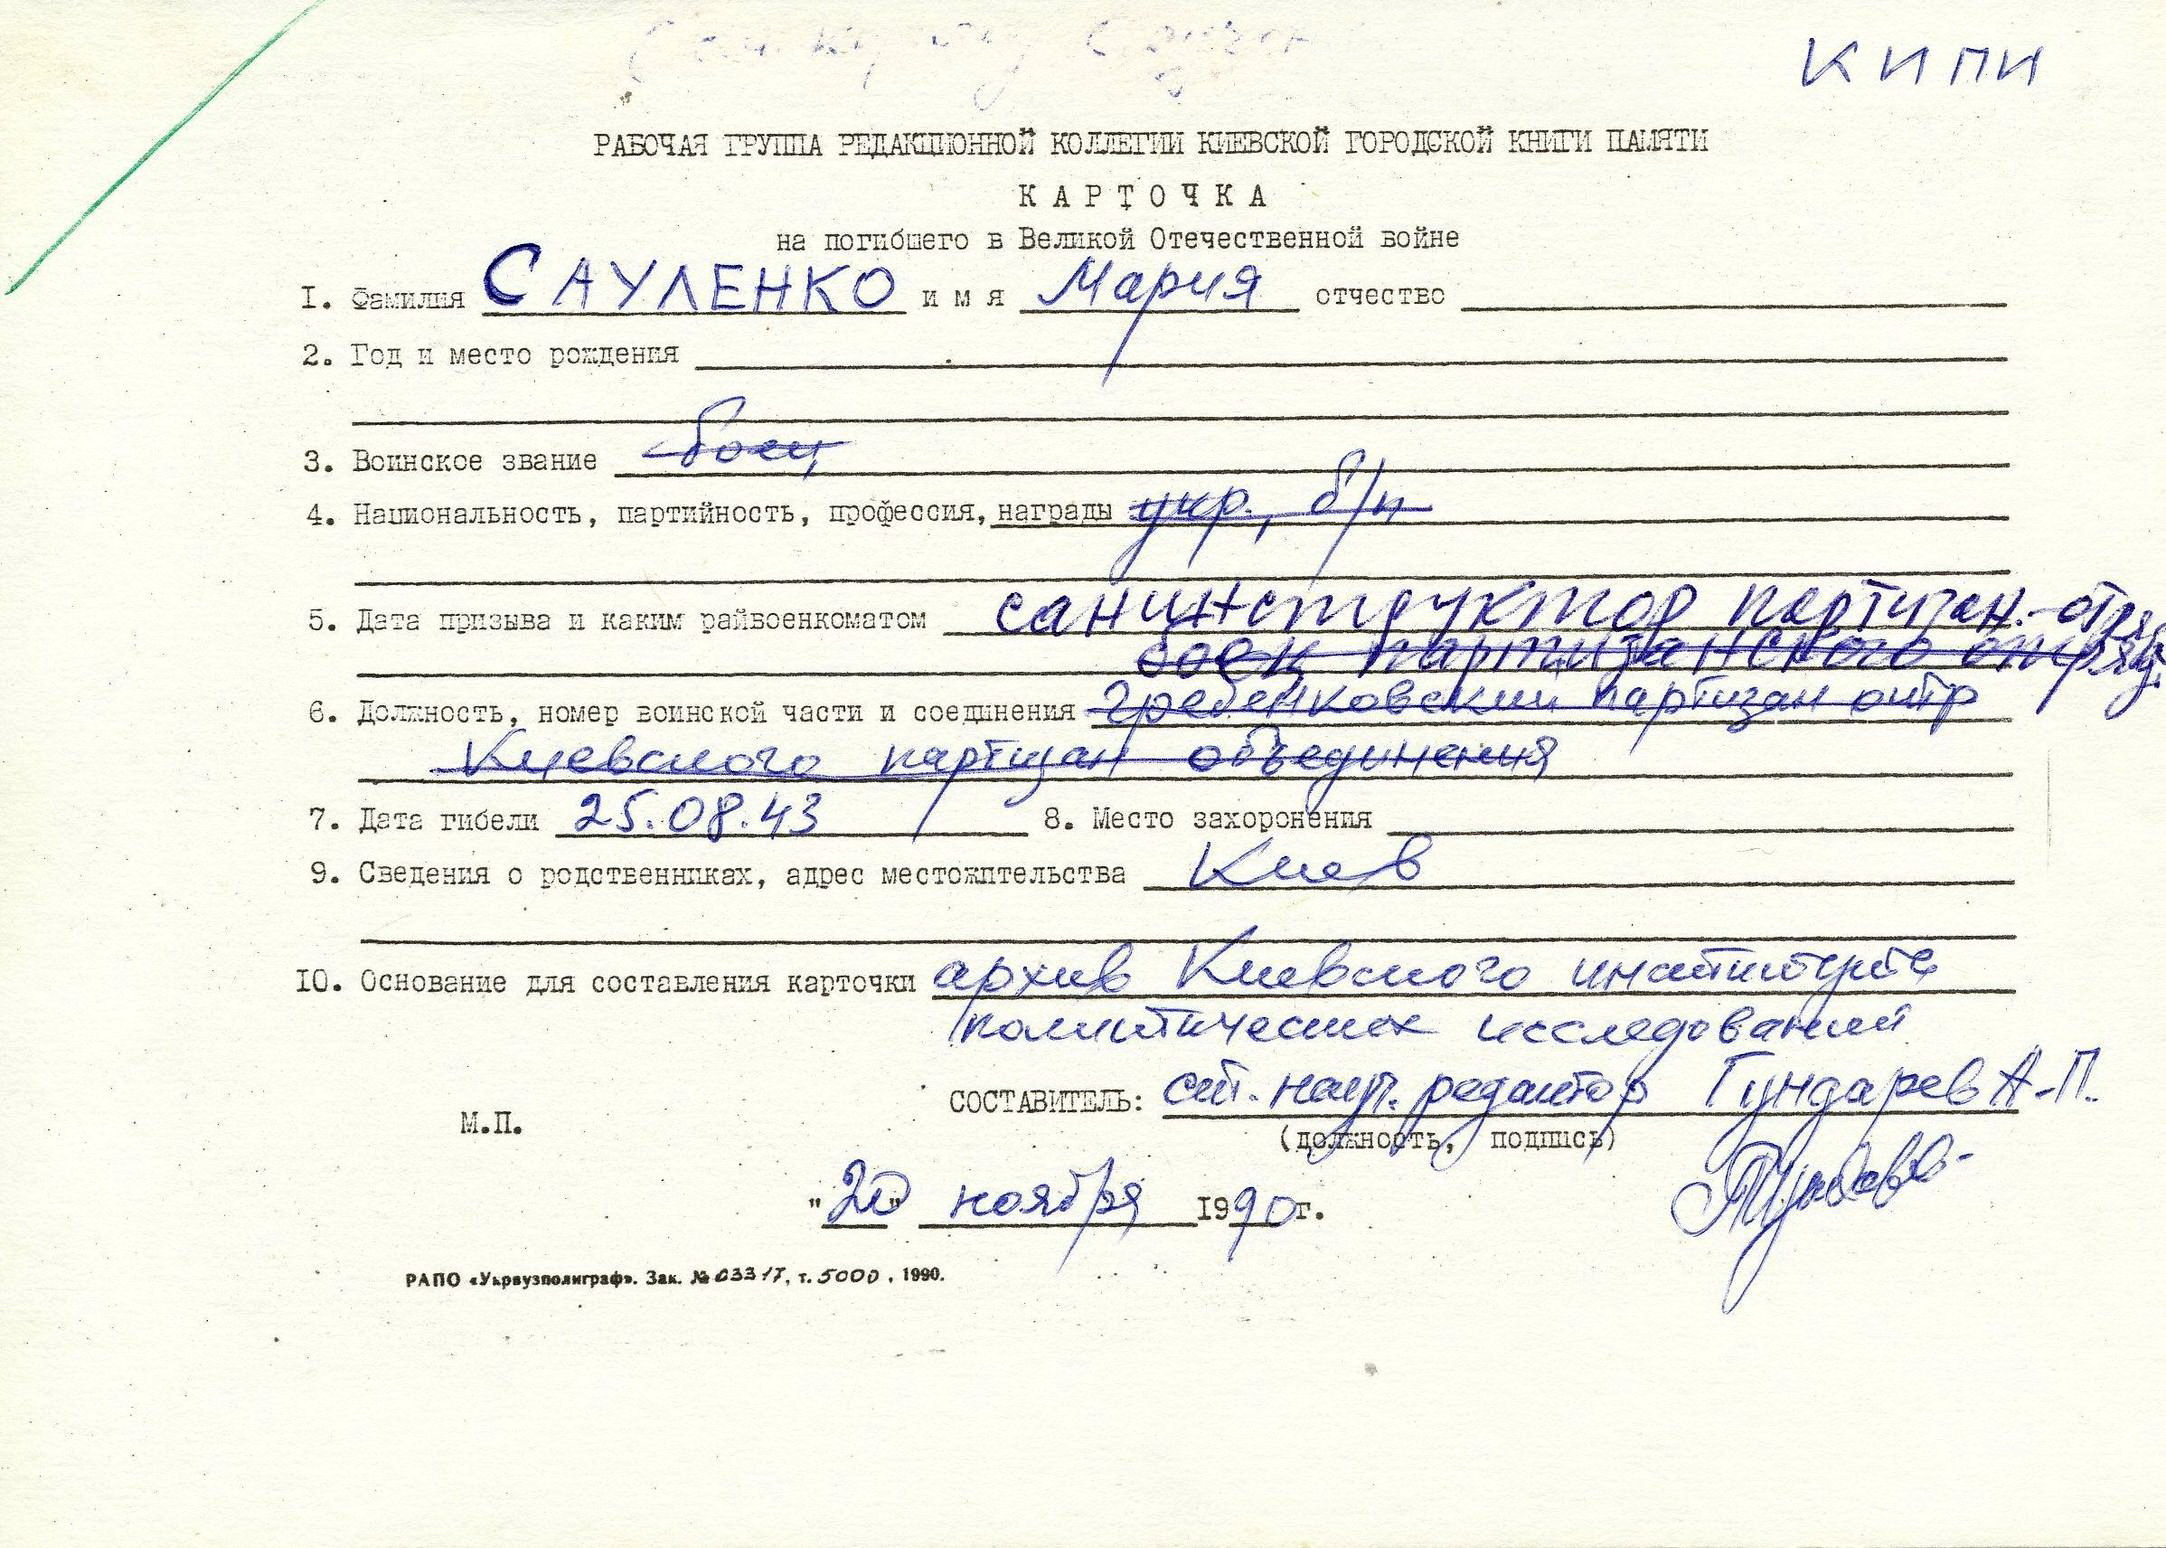 КИПИ
РАБОЧАЯ ГРУППА РЕДАКЦИОННОЙ КОЛЛЕГИИ КИЕВСКОЙ ГОРОДСКОЙ КНИГИ ПАМЯТИ
КАРТОЧКА
на погибшего в Великой Отечественной войне
I. Фамилия САУЛЕНКО имя Мария отчество
2. Год и место рождения
3. Воинское звание боец
4. Национальность, партийность, профессия, награды укр., б/п
5. Дата призыва и каким райвоенкоматом санинструктор партизан. отряд
боец партизанского отряда
6. Должность, номер воинской части и соединения Гребенковский партизан отр
Киевского партизан объединения
7. Дата гибели 25.08.43 8. Место захоронения
9. Сведения о родственниках, адрес местожительства Киев
10. Основание для составления карточки архив Киевского института
политических исследований
СОСТАВИТЕЛЬ: ст. науч. редактор Гундарев А.П.
М.П.
(должность, подпись)
"20" ноября 1990г.
РАПО «Укрвузполиграф». Зак. № 03317, т. 5000, 1990.